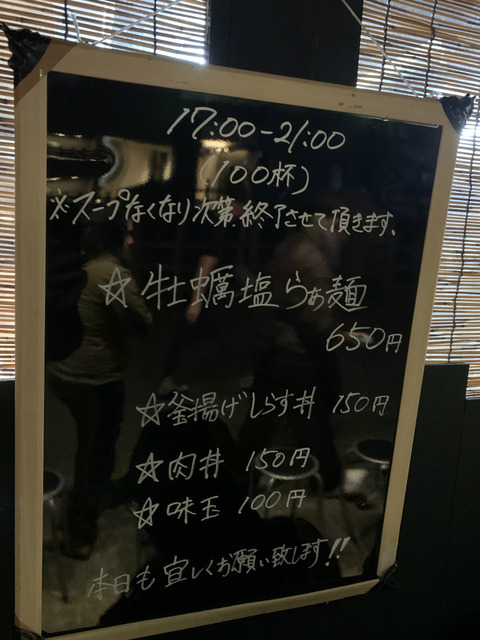 17:00-21:00
(100杯)
※スープなくなり次第終了させて頂きます、
☆牡蠣塩らぁ麺
650円
☆釜揚げしらす丼 150円
☆肉丼 150円
☆味玉 100円
本日も宜しくお願い致します!!